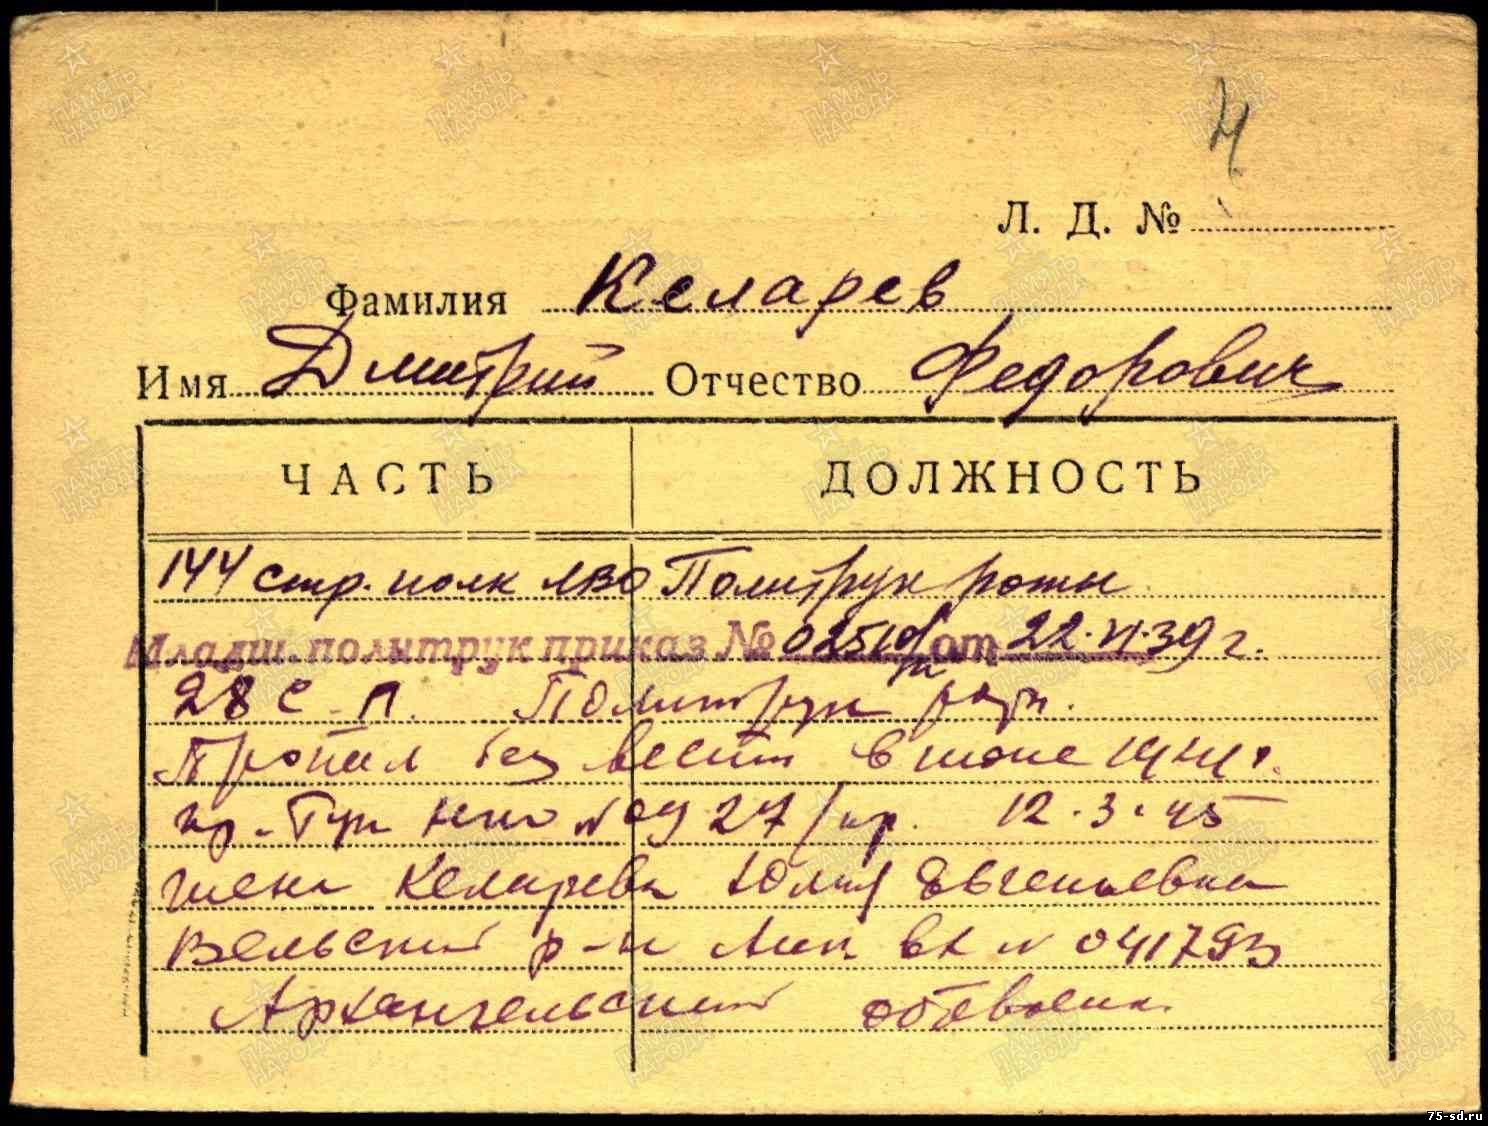 Л. Д. №
Фамилия Келарев
Имя Дмитрий Отчество Федорович
ЧАСТЬ ДОЛЖНОСТЬ
144 стр. полк ЛВО Политрук роты
Младш. политрук приказ № от 22.VI.39 г.
28 С.П. Политрук роты.
Пропал без вести в июне 1941 г.
пр. ГУК НКО № 0927/пр. 12.3.45
жена Келарева Юлия Евгеньевна
Вельский р-н вх № 041793
Архангельский облвоенк.
ПАМЯТЬ НАРОДА
75-sd.ru